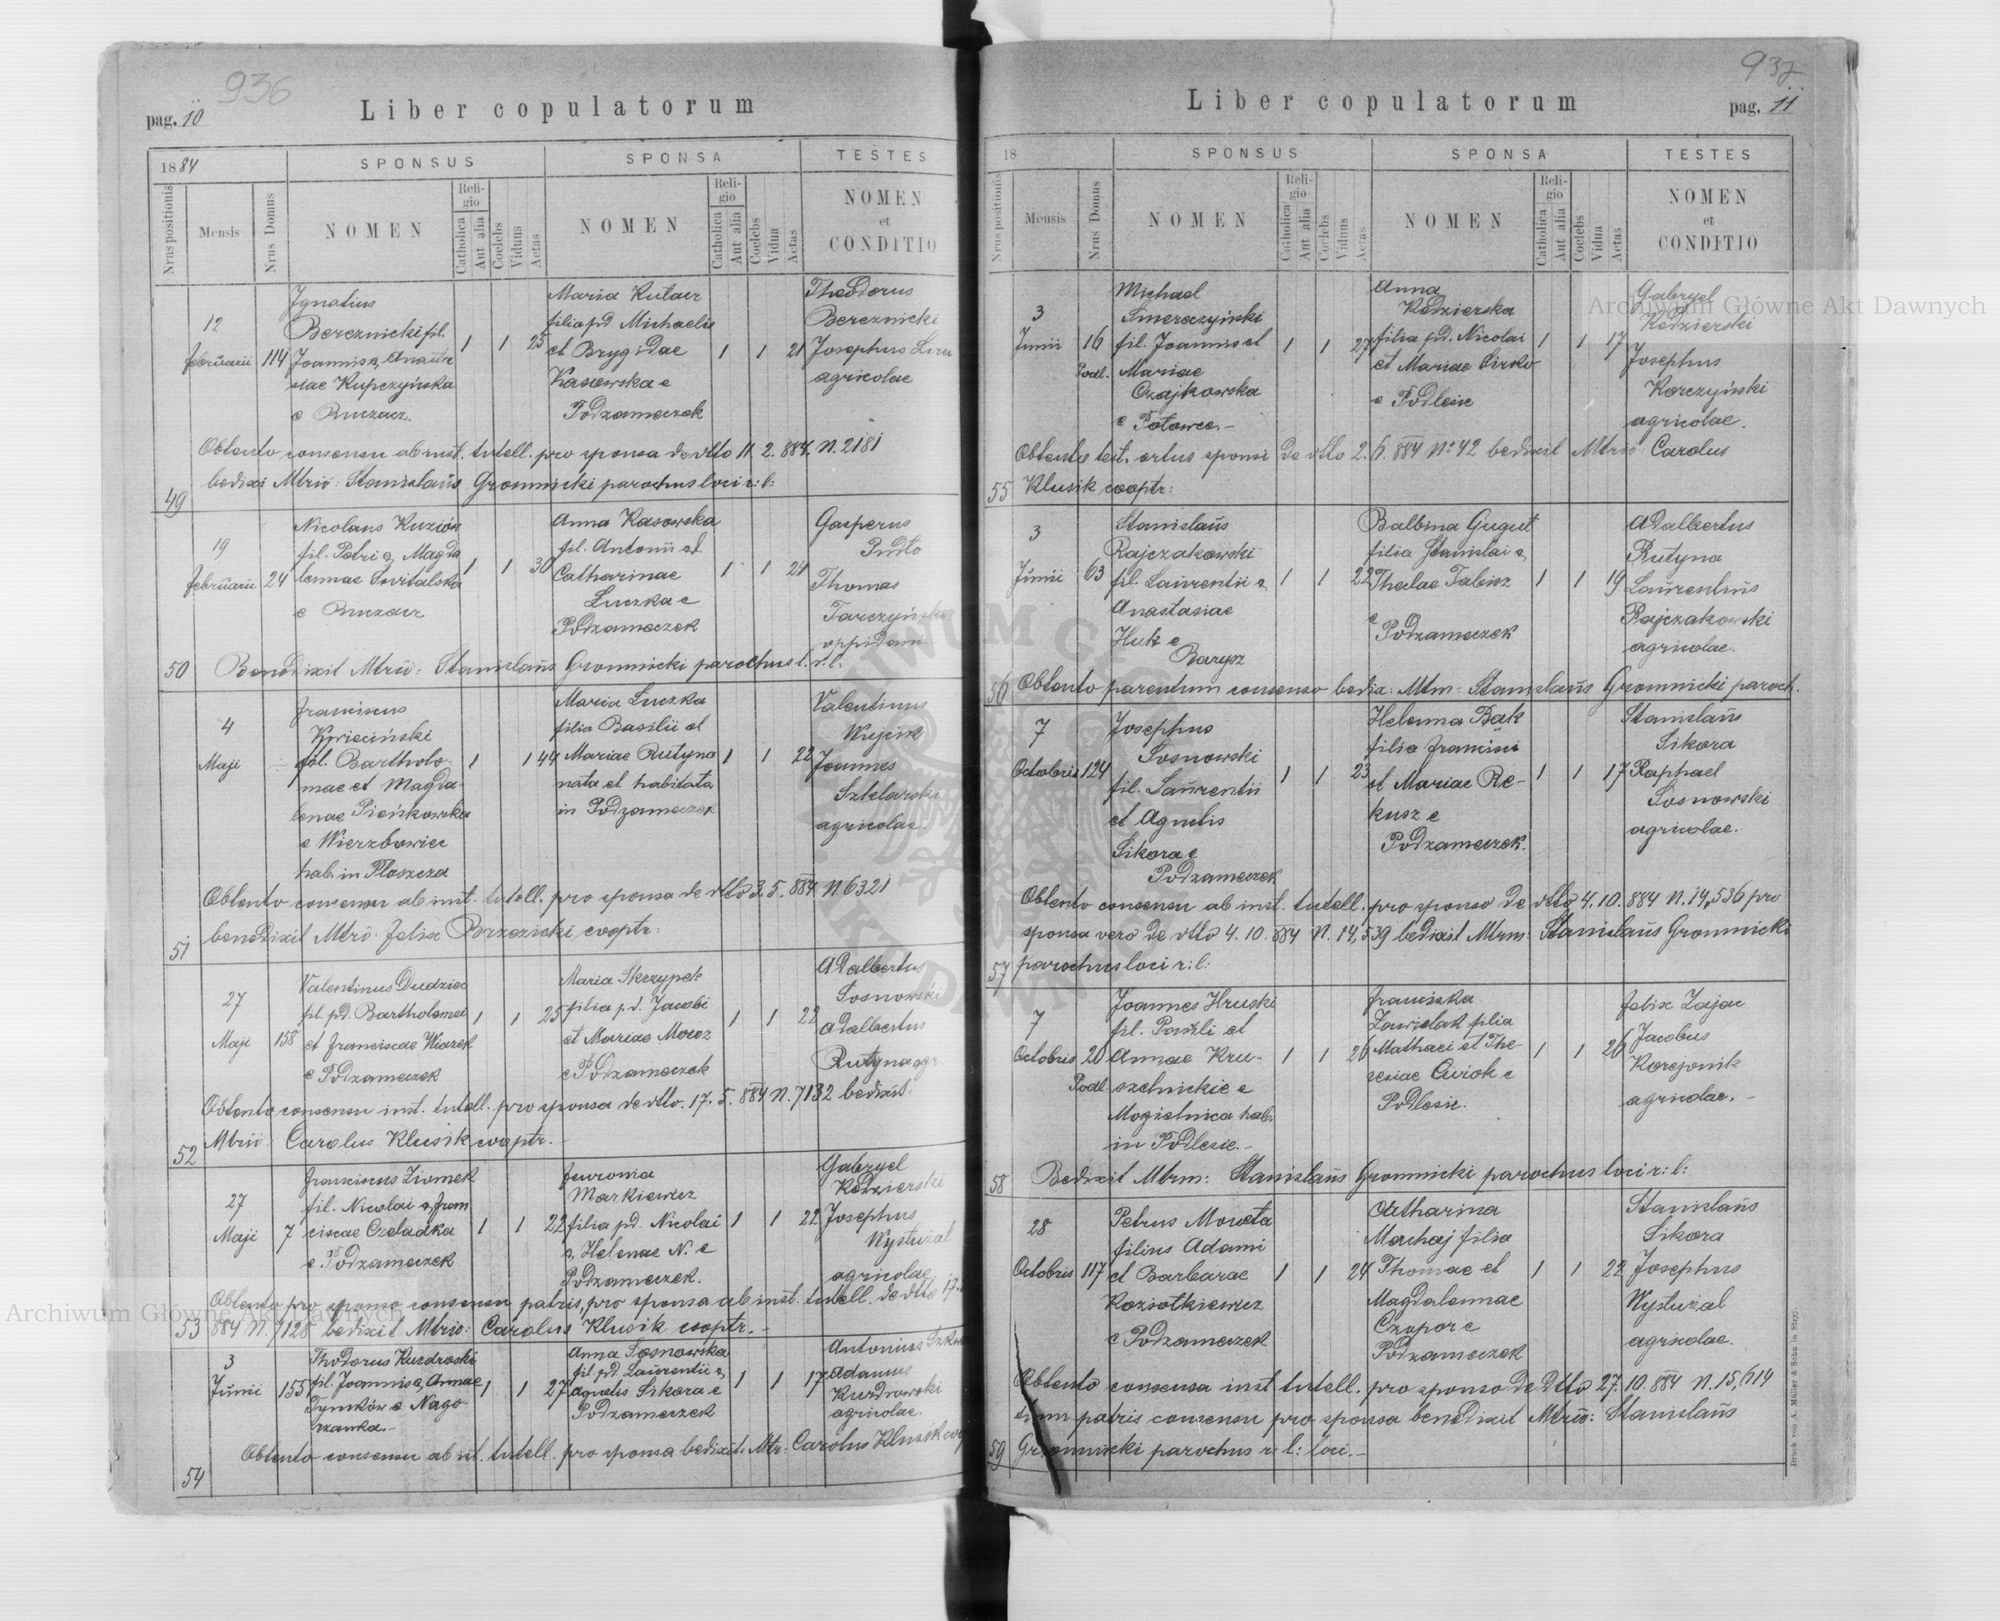 936
Liber copulatorum
pag. 10
1884
SPONSUS
SPONSA
TESTES
Nrus positionis
Mensis
Nrus Domus
NOMEN
Religio
Catholica
Aut alia
Coelebs
Viduus
Aetas
NOMEN
Religio
Catholica
Aut alia
Coelebs
Vidua
Aetas
NOMEN
et
CONDITIO
12
Februarii
114
Ignatius
Bereznicki fil.
Joannis &
siae Kupczyńska
e Buczacz.
1 1 25
Maria Kutacz
filia pd Michaelis
et Brygidae
Kasowska e
Podzameczek
1 1 21
Theodorus
Bereznicki
Josephus
agricolae
Obtento consensu ab inst. tutell. pro sponsa de dtto 11. 2. 884. N. 2181
bedixi Mtrio: Stanislaus Gromnicki parochus loci r: l:
49
19
Februarii
24
Nicolaus Kuziów
fil. Petri & Magda
lennae Switalska
e Buczacz
1 1 30
Anna Kasowska
fil. Antonii et
Catharinae
Luczka e
Podzameczek
1 1 21
Gasperus
Pudło
Thomas
Tarczyński
oppidani
50 Benedixit Mtrii: Stanislaus Gromnicki parochus l. r. l.
4
Maji
Franciscus
Kwieciński
fil. Bartholo
mae et Magda-
lenae Pieńkowska
e Wierzbowiec
hab. in Płoszcza
1 1 44
Maria Luczka
filia Basilii et
Mariae Rutyna
nata et habitata
in Podzameczek
1 1 22
Valentinus
Wujcik
Joannes
Szklarski
agricolae.
Obtento consensu ab inst. tutell. pro sponsa de dtto 3. 5. 884 N 6321
benedixit Mtrio Felix Brzezicki cooptr:
51
27
Maji
158
Valentinus Dudziec
fil. pd. Bartholomei
et Franciscae Wiazek
e Podzameczek
1 1 25
Maria Skrzypek
filia pd. Jacobi
et Mariae Moroz
e Podzameczek
1 1 22
Adalbertus
Sosnowski
Adalbertus
Rutyna agr.
Obtento consensu inst. tutell. pro sponsa de dtto. 17. 5. 884 N. 7132 bedixit.
Mtrii Carolus Klusik cooptr.
52
27
Maji
7
Franciscus Ziomek
fil. Nicolai & Fran
ciscae Czeladka
e Podzameczek
1 1 22
Fevronia
Markiewicz
filia pd. Nicolai
& Helenae N. e
Podzameczek.
1 1 22
Gabryel
Kedzierski
Josephus
Wystuzal
agricolae
Obtento pro sponso consensu patris, pro sponsa ab inst. tutell. de dtto 17.
53 884 N. 7128 bedixit Mtrio: Carolus Klusik cooptr.
3
Junii
155
Thodorus Kuzdroski
fil. Joannis & Annae
Tymków e Nago
rzanka.
1 1 27
Anna Sosnowska
fil. pd Laurentii &
Agnetis Sikora e
Podzameczek
1 1 17
Antonius
Adamus
Kuzdrowski
agricolae.
Obtento consensu ab ist. tutell. pro sponsa bedixit: Mtr: Carolus Klusik
54
937
Liber copulatorum
pag. 11
18
SPONSUS
SPONSA
TESTES
Nrus positionis
Mensis
Nrus Domus
NOMEN
Religio
Catholica
Aut alia
Coelebs
Viduus
Aetas
NOMEN
Religio
Catholica
Aut alia
Coelebs
Vidua
Aetas
NOMEN
et
CONDITIO
3
Junii
16
Podl.
Michael
Smereczyński
fil. Joannis et
Mariae
Czajkowska
e Potowce.
1 1 27
Anna
Kedzierska
filia pd. Nicolai
et Mariae Sirko
e Podlesie
1 1 17
Gabryel
Kedzierski
Josephus
Korczyński
agricolae.
Obtento test. ortus sponsi de dtto 2. 6. 884 No 42 bedixit Mtrio Carolus
55 Klusik cooptr:
3
Junii
63
Stanislaus
Rajczakowski
fil. Laurentii &
Anastasiae
Huk e
Barysz
1 1 22
Balbina Gugut
filia Stanislai &
Theclae Tabisz
e
Podzameczek
1 1 19
Adalbertus
Rutyna
Laurentius
Rajczakowski
agricolae.
56 Obtento parentum consenso bedix: Mtm: Stanislaus Gromnicki paroch.
7
Octobris
124
Josephus
Sosnowski
fil. Laurentii
et Agnetis
Sikora e
Podzameczek
1 1 23
Helenna Bak
filia Francisci
et Mariae Re-
kusz e
Podzameczek.
1 1 17
Stanislaus
Sikora
Raphael
Sosnowski
agricolae.
Obtento consensu ab inst. tutell. pro sponso de dtto 4. 10. 884 N. 14,536 pro
sponsa vero de dtto 4. 10. 884 N. 14,539 bedixit Mtrm: Stanislaus Gromnicki
57 parochus loci r: l:
7
Octobris
20
Podl.
Joannes Hruski
fil. Pawli et
Annae Kru-
szelnickie e
Mogielnica hab.
in Podlesie.
1 1 26
Franciszka
Zawislak filia
Mathaei et The-
resiae Cwiok e
Podlesie.
1 1 26
Felix Zajac
Jacobus
Korejwnik
agricolae.
58 Bedixit Mtrm: Stanislaus Gromnicki parochus loci r: l:
28
Octobris
117
Petrus Moweta
filius Adami
et Barbarae
Koziotkiewicz
e Podzameczek
1 1 24
Catharina
Machaj filia
Thomae et
Magdalennae
Czopor e
Podzameczek
1 1 22
Stanislaus
Sikora
Josephus
Wystuzal
agricolae.
Obtento consensu inst tutell. pro sponso de dtto 27. 10. 884 N. 15,614
tum patris consensu pro sponsa benedixit Mtrio: Stanislaus
59 Gromnicki parochus r: l: loci.
Druck von A. Müller & Sohn in Stryj.
Archiwum Główne Akt Dawnych
Archiwum Główne Akt Dawnych